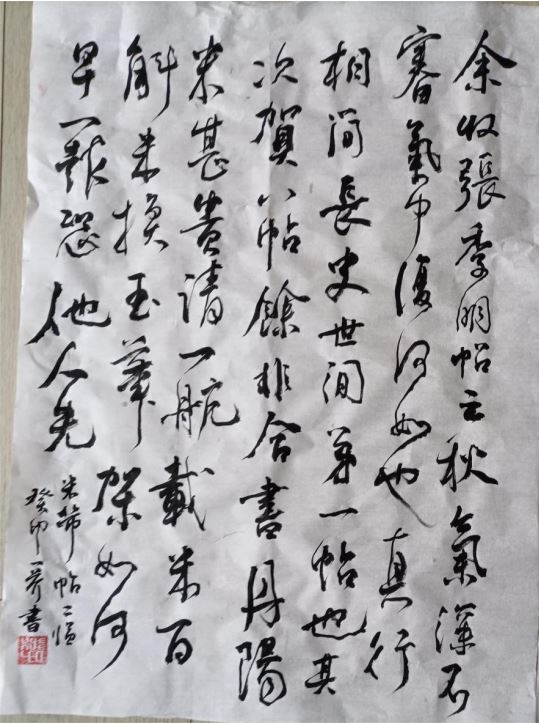 余收張季明帖云秋氣深不
審氣力復何如也真行
相間長史世間第一帖也其
次賀八帖餘非合書丹陽
米甚貴請一航載米百
斛来换玉筆架如何
早一報恐他人先
米芾帖二
癸卯書